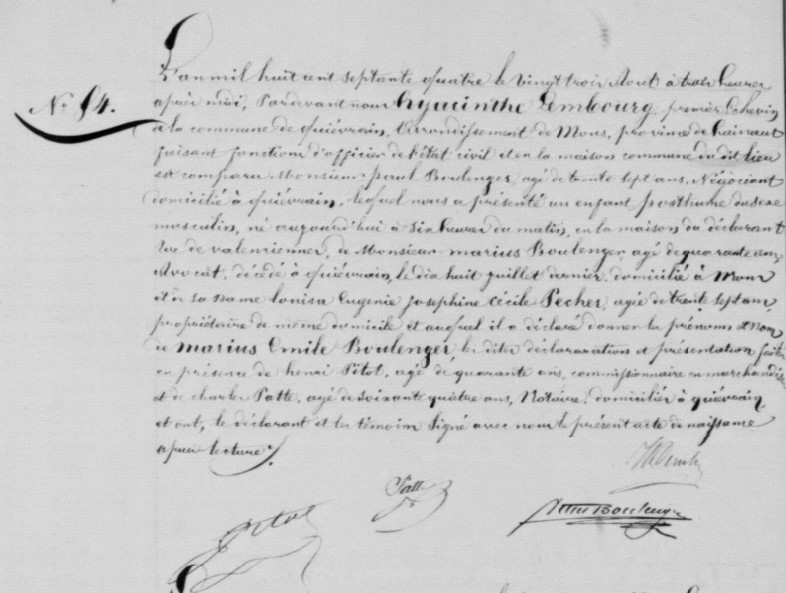 L'an mil huit cent septante quatre le vingt trois Aout à trois heures
N° 84.
après midi, Pardevant nous hyacinthe Lembourg premier Echevin
de la commune de Quiévrain, Arrondissement de Mons, province de hainaut
faisant fonctions d'officier de l'état civil et en la maison commune du dit lieu
est comparu Monsieur paul Boulenger, agé de trente sept ans, Négociant
domicilié à Quiévrain, lequel nous a présenté un enfant posthume du sexe
masculin, né aujourd'hui à six heures du matin, en la maison du déclarant
rue de valenciennes, de Monsieur marius Boulenger, agé de quarante ans,
Avocat, décédé à Quiévrain, le dix huit juillet dernier, domicilié à Mons
et de sa Dame louisa Eugenie Josephine Cécile Pecher, agée de trente sept ans,
propriétaire de même domicile et auquel il a déclaré donner les prénoms et nom
de marius Emile Boulenger, les dites déclararation et présentation faites
en présence de henri Pitot, agé de quarante ans, commissionnaire en marchandises
et de charles Patte, agé de soixante quatre ans, Notaire, domiciliés à quiévrain
et ont, le déclarant et les témoins signé avec nous le présent acte de naissance
après lecture.
Patte
Pitot
Boulenger